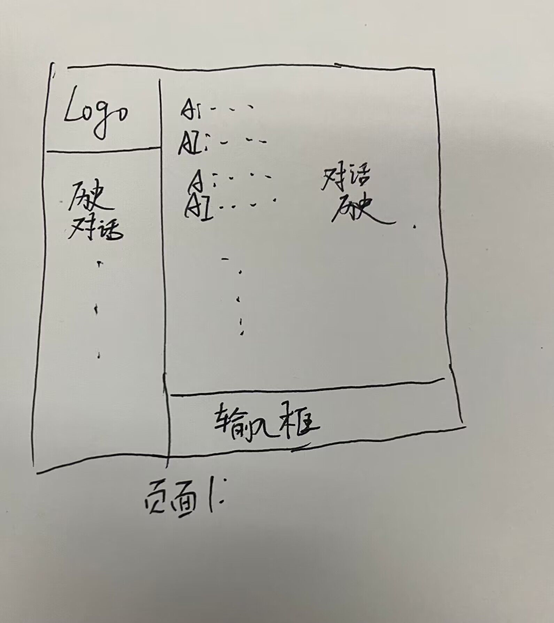 Logo
历史
对话
A: - - -
AI: - - -
A: - - - -
AI - - - -
对话
历史
输入框
页面1: